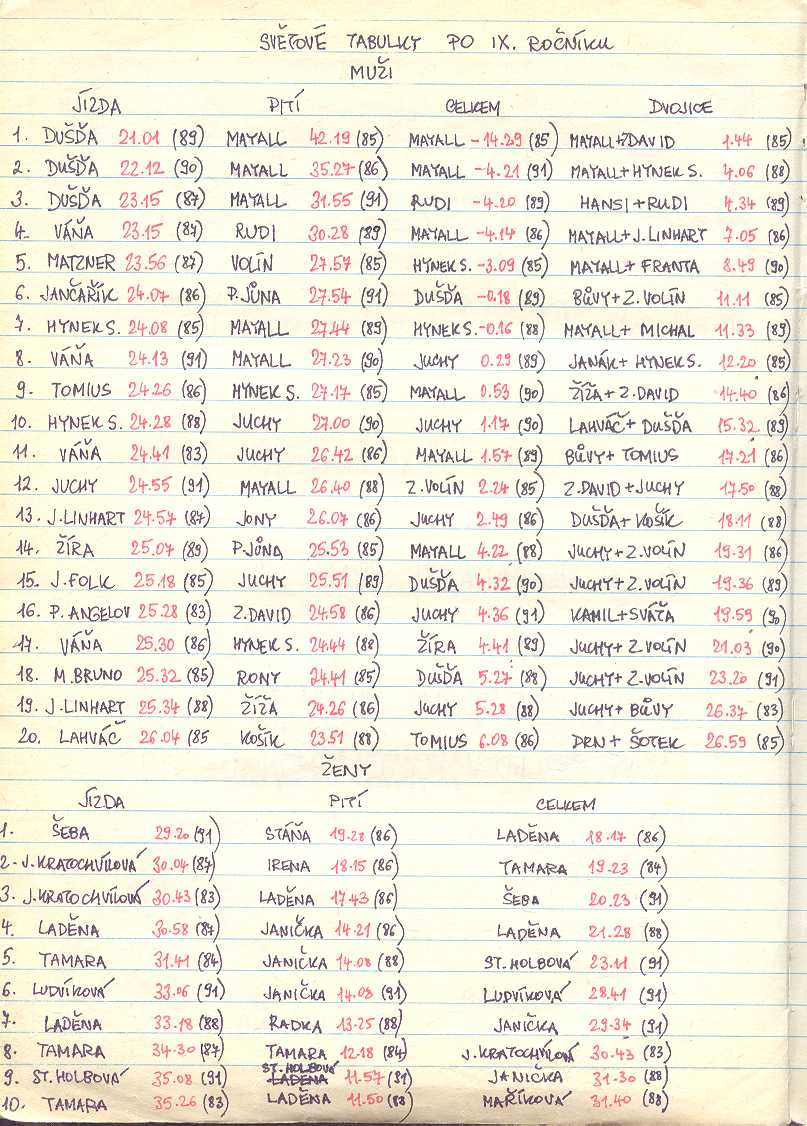 SVĚTOVÉ TABULKY PO IX. ROČNÍKU
MUŽI
JÍZDA PITÍ CELKEM DVOJICE
1. DUŠĎA 21.01 (89) MAYALL 42.19 (85) MAYALL -14.29 (85) MAYALL+DAVID 1.44 (85)
2. DUŠĎA 22.12 (90) MAYALL 35.27 (86) MAYALL -4.21 (91) MAYALL+HYNEK S. 4.06 (88)
3. DUŠĎA 23.15 (87) MAYALL 31.55 (91) RUDI -4.20 (89) HANSI+RUDI 4.34 (89)
4. VÁŇA 23.15 (87) RUDI 30.28 (89) MAYALL -4.14 (86) MAYALL+J.LINHART 7.05 (86)
5. MATZNER 23.56 (87) VOLÍN 27.57 (85) HYNEK S. -3.09 (85) MAYALL+FRANTA 8.49 (90)
6. JANČAŘÍK 24.07 (86) P.JŮNA 27.54 (91) DUŠĎA -0.18 (89) BŮVY+Z.VOLÍN 11.11 (85)
7. HYNEK S. 24.08 (85) MAYALL 27.44 (89) HYNEK S. -0.16 (88) MAYALL+ MICHAL 11.33 (89)
8. VÁŇA 24.13 (91) MAYALL 27.23 (90) JUCHY 0.29 (89) JANÁK+HYNEK S. 12.20 (85)
9. TOMIUS 24.26 (86) HYNEK S. 27.17 (85) MAYALL 0.53 (90) ŽÍŽA+Z.DAVID 14.40 (86)
10. HYNEK S. 24.28 (88) JUCHY 27.00 (90) JUCHY 1.17 (90) LAHVÁČ+DUŠĎA 15.32 (89)
11. VÁŇA 24.41 (83) JUCHY 26.42 (86) MAYALL 1.57 (89) BŮVY+TOMIUS 17.21 (86)
12. JUCHY 24.55 (91) MAYALL 26.40 (88) Z.VOLÍN 2.24 (85) Z.DAVID+JUCHY 17.50 (88)
13. J.LINHART 24.57 (87) JONY 26.07 (86) JUCHY 2.49 (86) DUŠĎA+KOŠÍK 18.11 (88)
14. ŽÍRA 25.07 (89) P.JŮNA 25.53 (85) MAYALL 4.22 (88) JUCHY+Z.VOLÍN 19.31 (86)
15. J.FOLK 25.18 (85) JUCHY 25.51 (89) DUŠĎA 4.32 (90) JUCHY+Z.VOLÍN 19.36 (89)
16. P.ANGELOV 25.28 (83) Z.DAVID 24.58 (86) JUCHY 4.36 (91) KAMIL+SVÁŤA 19.59 (90)
17. VÁŇA 25.30 (86) HYNEK S. 24.44 (88) ŽÍRA 4.41 (89) JUCHY+Z.VOLÍN 21.03 (90)
18. M.BRUNO 25.32 (85) RONY 24.41 (85) DUŠĎA 5.27 (88) JUCHY+Z.VOLÍN 23.20 (91)
19. J.LINHART 25.34 (88) ŽÍŽA 24.26 (86) JUCHY 5.28 (88) JUCHY+BŮVY 26.37 (83)
20. LAHVÁČ 26.04 (85 KOŠÍK 23.51 (88) TOMIUS 6.08 (86) DRN+ŠOTEK 26.59 (85)
ŽENY
JÍZDA PITÍ CELKEM
1. ŠEBA 29.20 (91) STÁŇA 19.28 (86) LADĚNA 18.17 (86)
2. J.KRATOCHVÍLOVÁ 30.04 (87) IRENA 18.15 (86) TAMARA 19.23 (84)
3. J.KRATOCHVÍLOVÁ 30.43 (83) LADĚNA 17.43 (86) ŠEBA 20.23 (91)
4. LADĚNA 30.58 (87) JANIČKA 14.21 (86) LADĚNA 21.28 (88)
5. TAMARA 31.41 (84) JANIČKA 14.08 (88) ST.HOLBOVÁ 23.11 (91)
6. LUDVÍKOVÁ 33.06 (91) JANIČKA 14.03 (91) LUDVÍKOVÁ 28.41 (91)
7. LADĚNA 33.18 (88) RADKA 13.25 (88) JANIČKA 29.34 (91)
8. TAMARA 34.30 (87) TAMARA 12.18 (84) J.KRATOCHVÍLOVÁ 30.43 (83)
9. ST.HOLBOVÁ 35.08 (91) ST.HOLBOVÁ LADĚNA 11.57 (91) JANIČKA 31.30 (88)
10. TAMARA 35.26 (83) LADĚNA 11.50 (88) MAŘÍKOVÁ 31.40 (88)